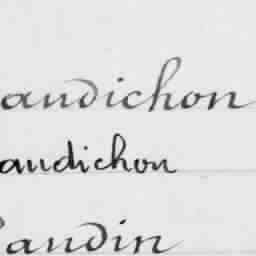 audichon
audichon
audin